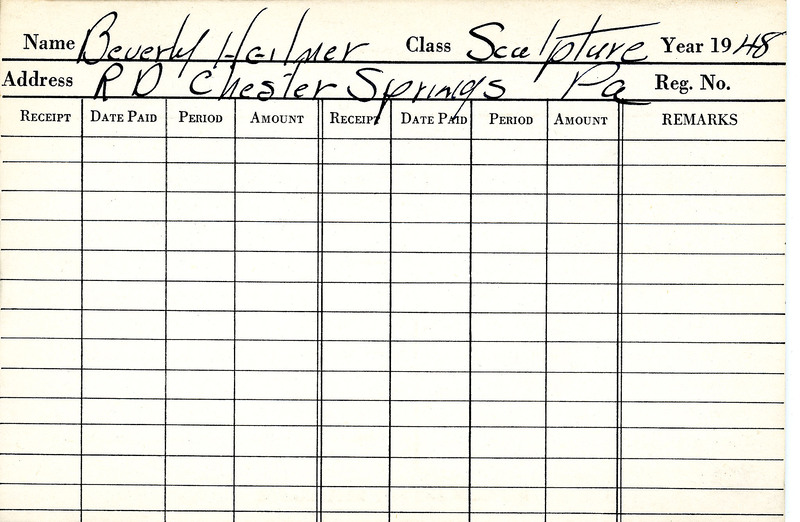 Name Beverly Heilner Class Sculpture Year 1948
Address R D Chester Springs Pa Reg. No.
RECEIPT DATE PAID PERIOD AMOUNT RECEIPT DATE PAID PERIOD AMOUNT REMARKS